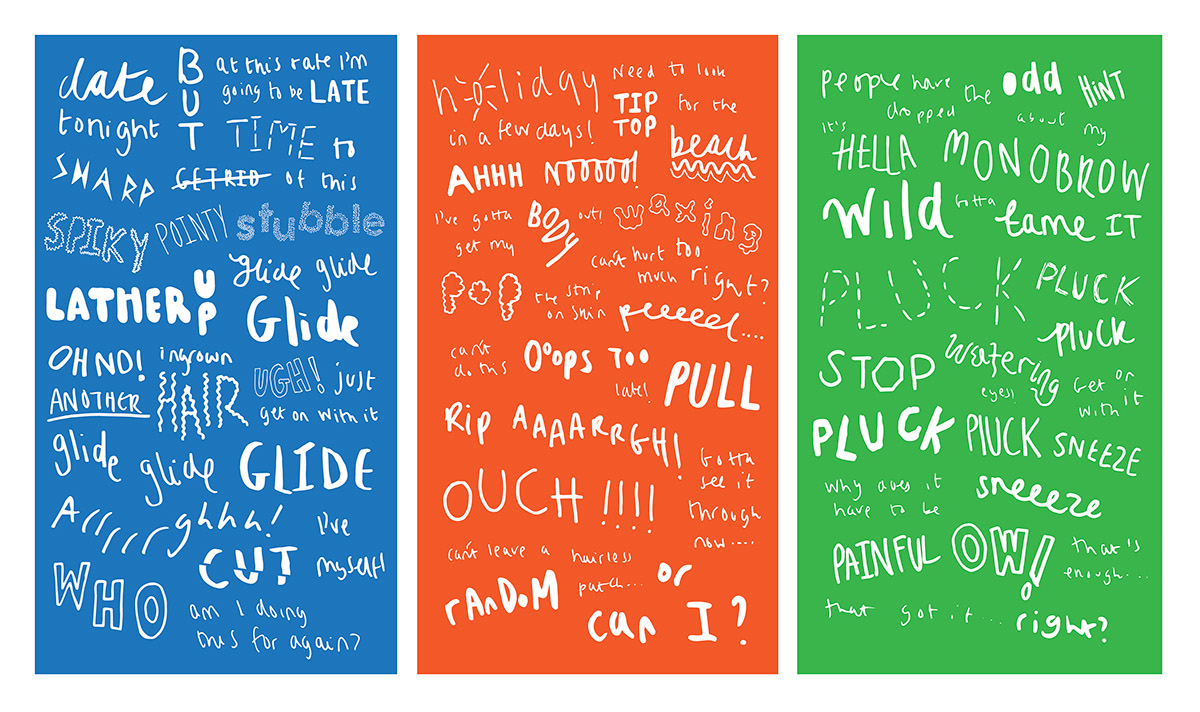 date BUT at this rate I'm
going to be LATE
tonight TIME to
SHARP GET RID of this
SPIKY POINTY stubble
LATHER UP glide glide
Glide
OH NO! ingrown
ANOTHER HAIR UGH! just
get on with it
glide glide GLIDE
A//////rghhh! I've
CUT myself!
WHO am I doing
this for again?
holiday Need to look
in a few days! TIP TOP for the
beach
AHHH NOOOOO!
I've gotta BODY out! waxing
get my
can't hurt too
much right?
POP the strip
on skin peeeeel....
can't
do this Ooops TOO
late! PULL
Rip AAAARRGH!
Gotta
see it
OUCH !!!! through
now....
can't leave a hairless
patch... or
rAnDoM can I?
people have the odd HINT
dropped about
It's HELLA my MONOBROW
Wild Gotta tame IT
PLUCK PLUCK
pluck
STOP Watering
eyes! Get on
with it
PLUCK PlUCK SNEEZE
why does it
have to be sneeeze
PAINFUL OW! that's
enough...
that got it... right?